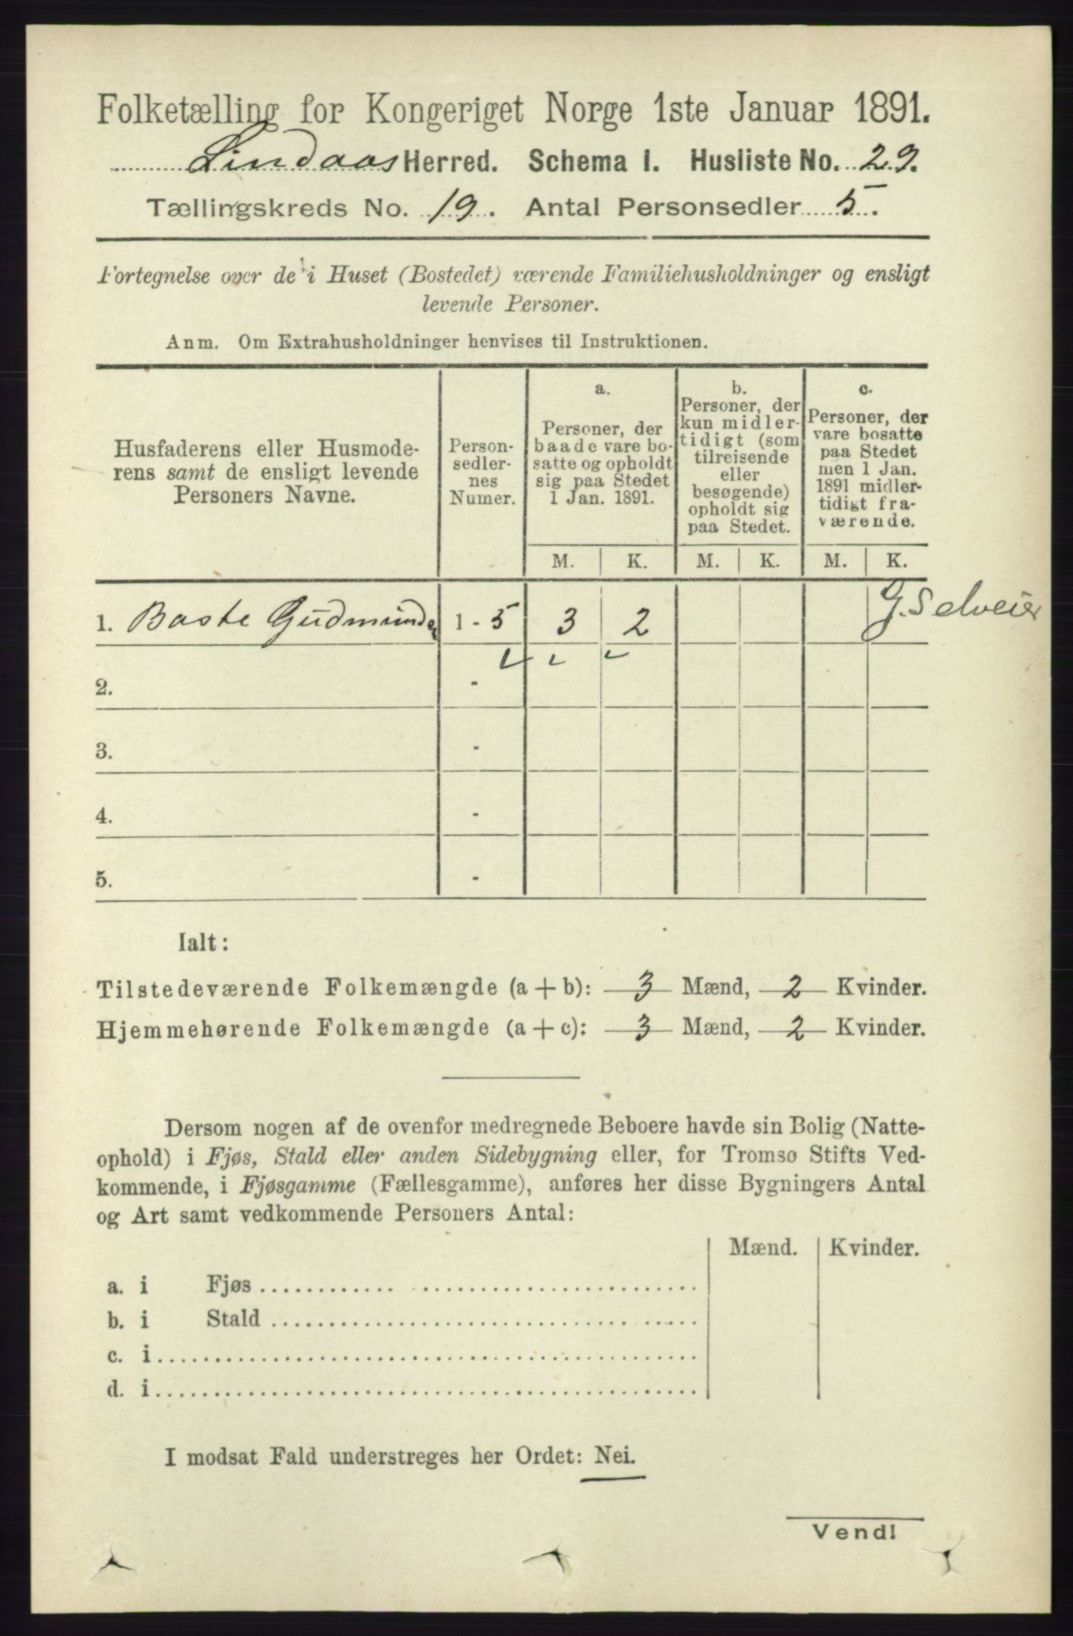 Folketælling for Kongeriget Norge 1ste Januar 1891.
Lindaas Herred. Schema I. Husliste No. 29.
Tællingskreds No. 19. Antal Personsedler 5.
Fortegnelse over de i Huset (Bostedet) værende Familiehusholdninger og ensligt
levende Personer.
Anm. Om Extrahusholdninger henvises til Instruktionen.
Husfaderens eller Husmode-
rens samt de ensligt levende
Personers Navne.
Person-
sedler-
nes
Numer.
a.
Personer, der
baade vare bo-
satte og opholdt
sig paa Stedet
1 Jan. 1891.
b.
Personer, der
kun midler-
tidigt (som
tilreisende
eller
besøgende)
opholdt sig
paa Stedet.
c.
Personer, der
vare bosatte
paa Stedet
men 1 Jan.
1891 midler-
tidigt fra-
værende.
M. K. M. K. M. K.
1. Baste Gudmundsen 1 - 5 3 2 G. Selveier
2. -
3. -
4. -
5. -
Ialt:
Tilstedeværende Folkemængde (a + b): 3 Mænd, 2 Kvinder.
Hjemmehørende Folkemængde (a + c): 3 Mænd, 2 Kvinder.
Dersom nogen af de ovenfor medregnede Beboere havde sin Bolig (Natte-
ophold) i Fjøs, Stald eller anden Sidebygning eller, for Tromsø Stifts Ved-
kommende, i Fjøsgamme (Fællesgamme), anføres her disse Bygningers Antal
og Art samt vedkommende Personers Antal:
Mænd. Kvinder.
a. i Fjøs
b. i Stald
c. i
d. i
I modsat Fald understreges her Ordet: Nei.
Vend!